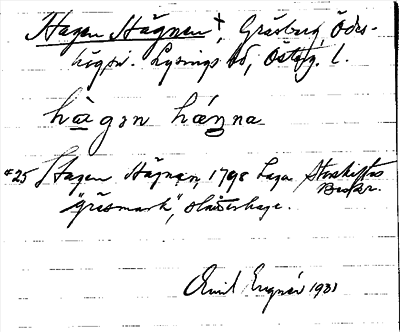 Hagen Hägnen†, Gräsberg, Ödes-
högs sn. Lysings hd, Österg. l.
hàgən hä́ŋna
*25 Hagen Hägnan, 1798 Laga Storskiftes
Beskr.
"gräsmark", slåtterhage.
Emil Engnér 1931